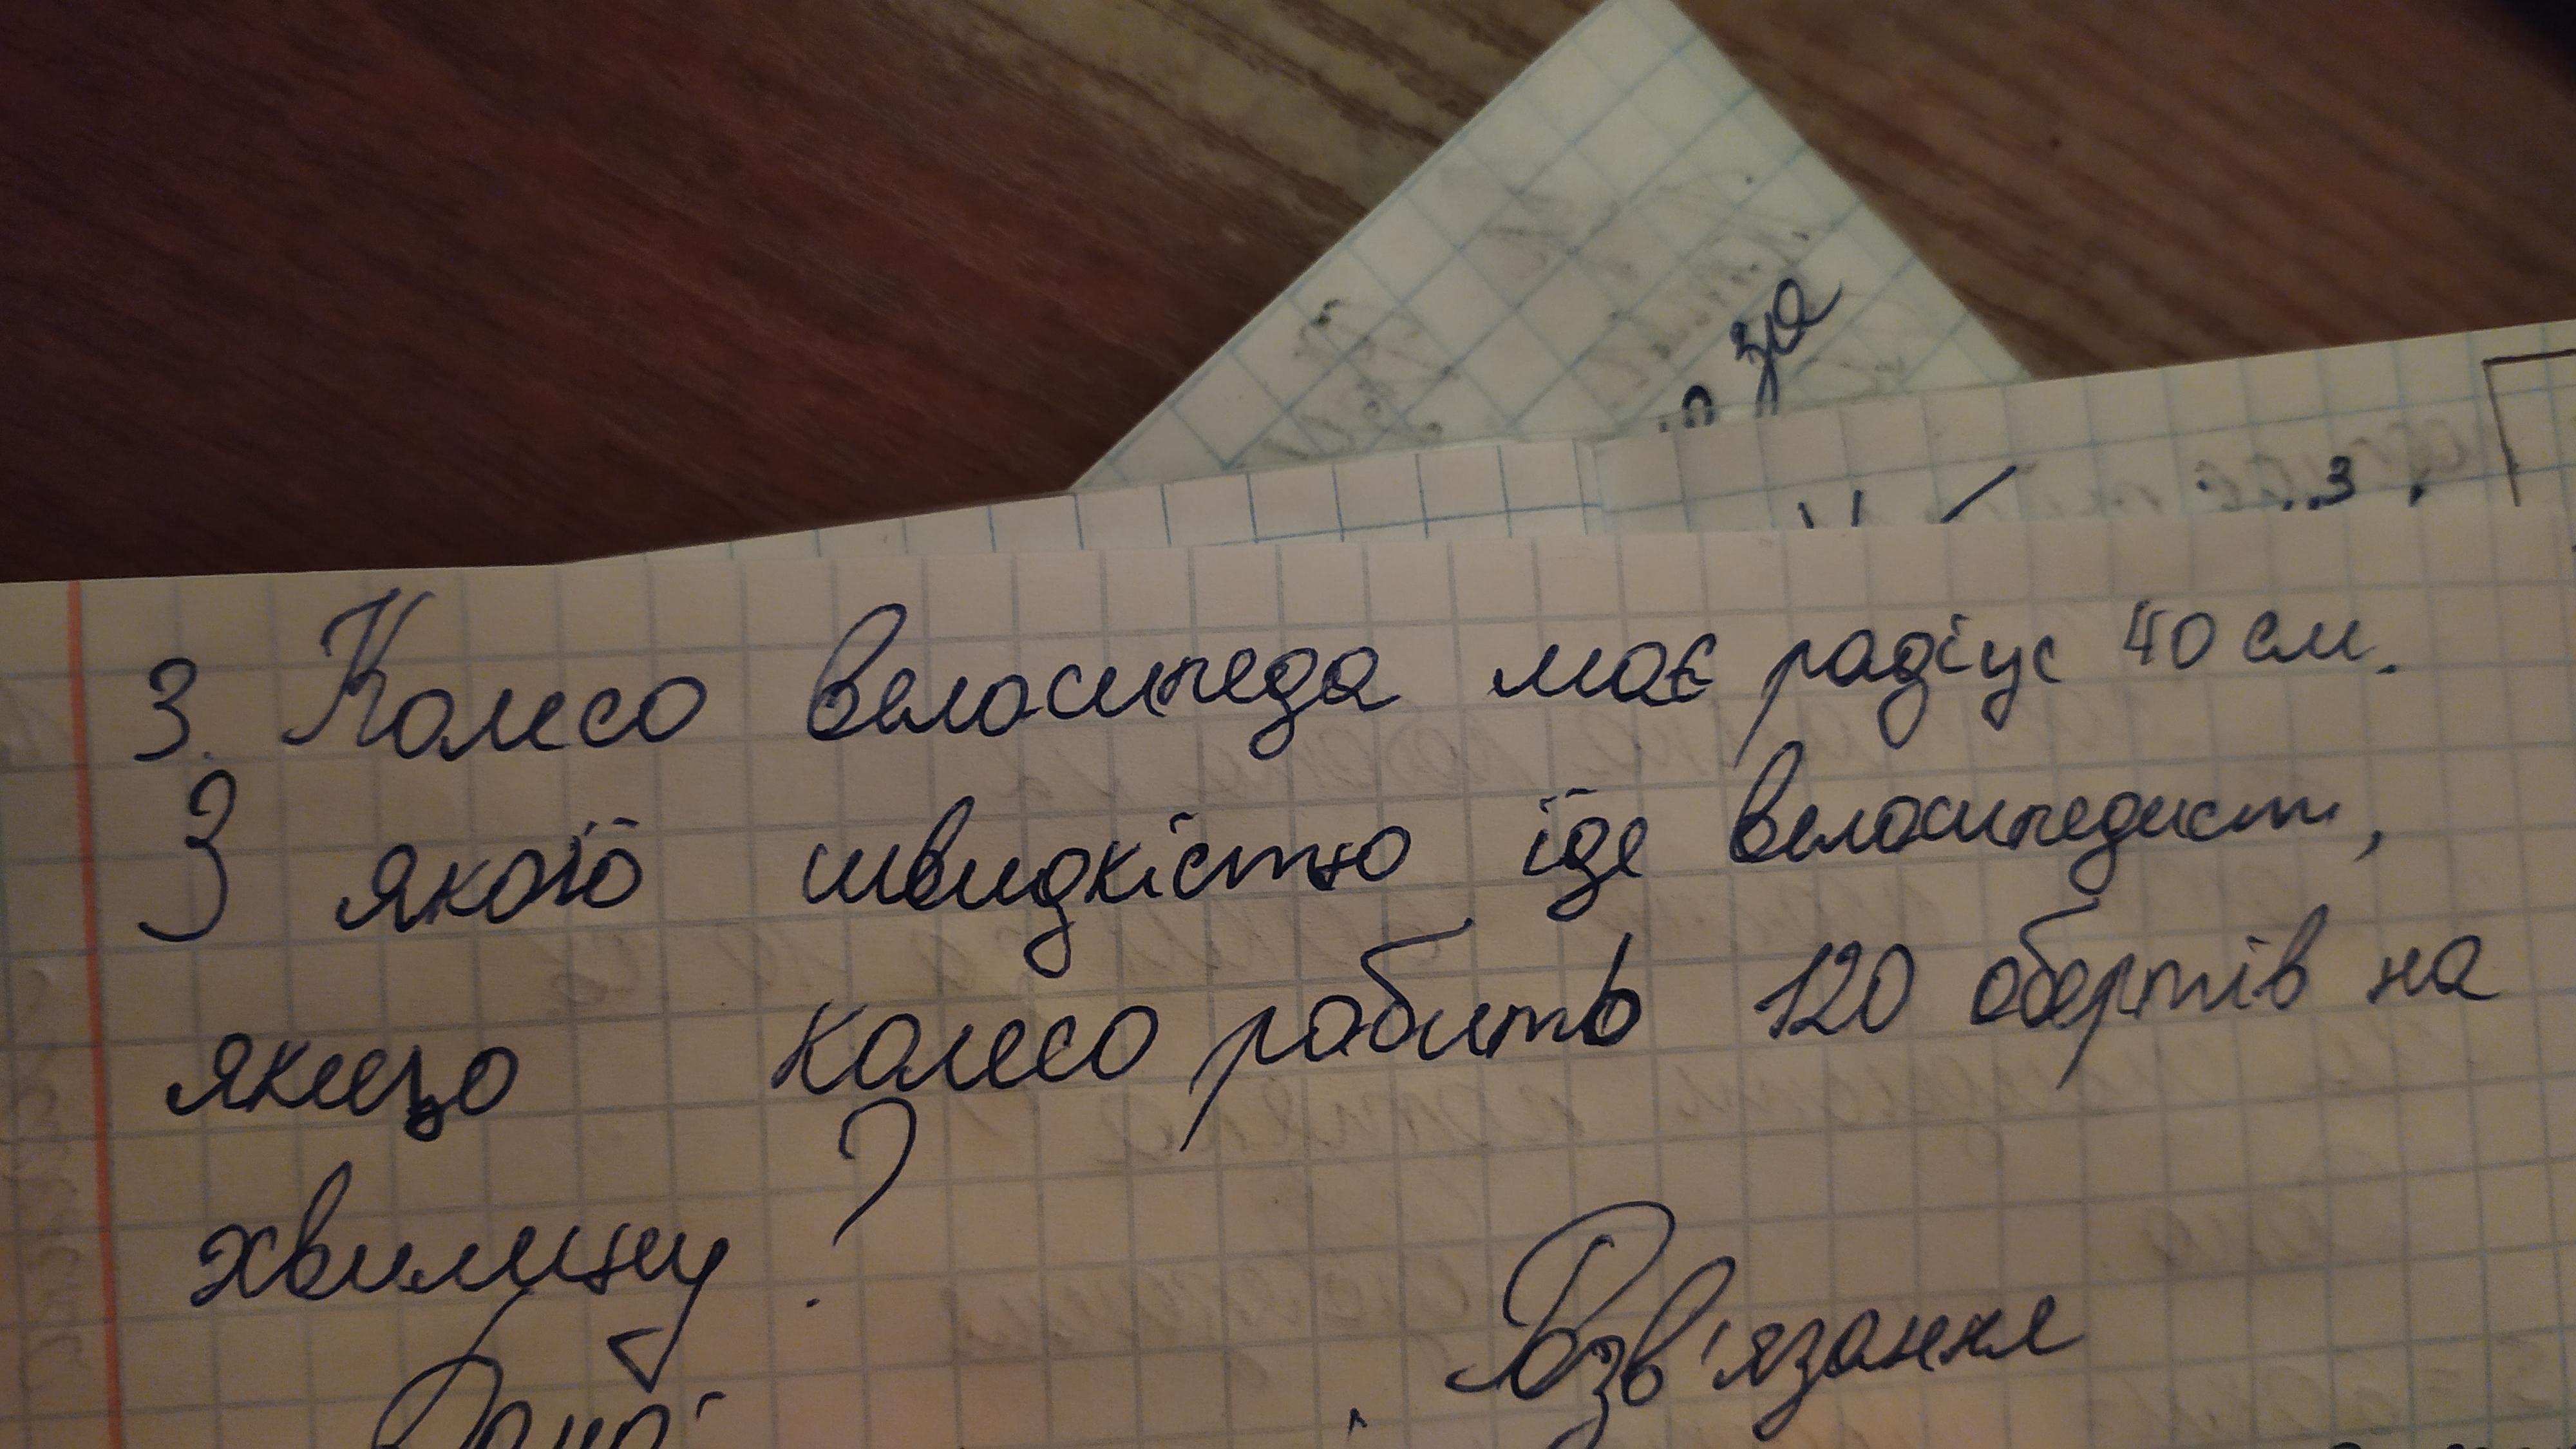 за
3. Колесо велосипеда має радіус 40 см.
З якою швидкістю їде велосипедист,
якщо колесо робить 120 обертів на
хвилину?
Розв'язання
Дано: